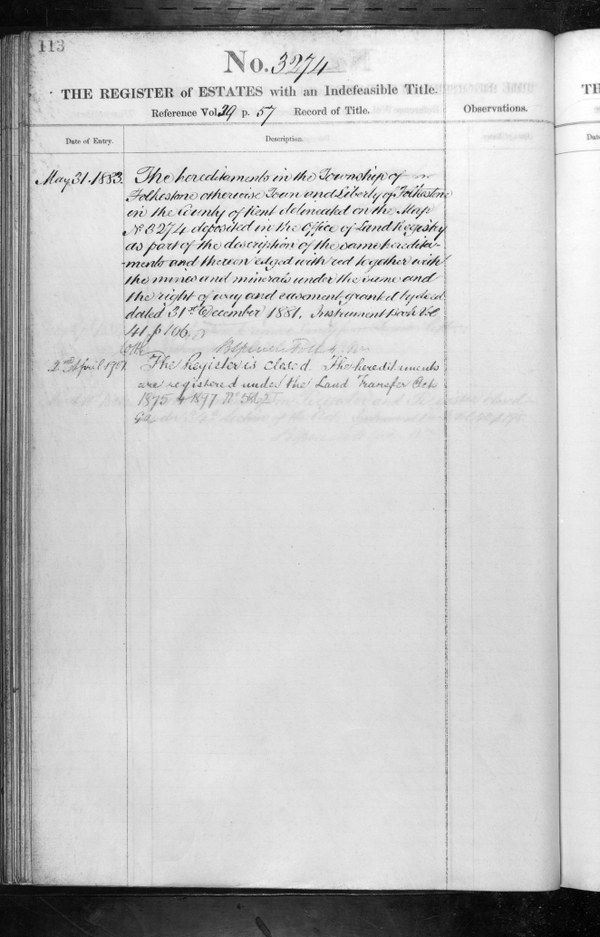 113
No. 3274
THE REGISTER of ESTATES with an Indefeasible Title.
Reference Vol. 29 p. 57 Record of Title.
Observations.
Date of Entry.
Description.
May 31. 1883.
The hereditaments in the Township of
Folkestone otherwise Town and Liberty of Folkestone
in the County of Kent delineated on the Map
No 3274 deposited in the Office of Land Registry
as part of the description of the same heredita-
-ments and thereon edged with red together with
the mines and minerals under the same and
the right of way and easement granted by deed
dated 31st December 1881. Instrument Book Vol
41. p 106.
2nd April
The Register is closed. The hereditaments
are registered under the Land Transfer Acts
1875 & 1897 No
TH
Dat